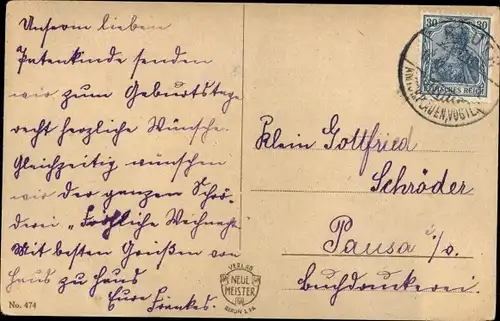 Unserm lieben
Patenkinde senden
wir zum Geburtstage
recht herzliche Wünsche.
Gleichzeitig wünschen
wir der ganzen Schrö-
derei „Fröhliche Weihnacht
Mit besten Grüßen von
Haus zu Haus
Eure Frankes.
No. 474
30 30
DEUTSCHES REICH
Klein Gottfried
Schröder
Pausa i/v.
Buchdruckerei.
VERLAG
NEUE
MEISTER
BERLIN